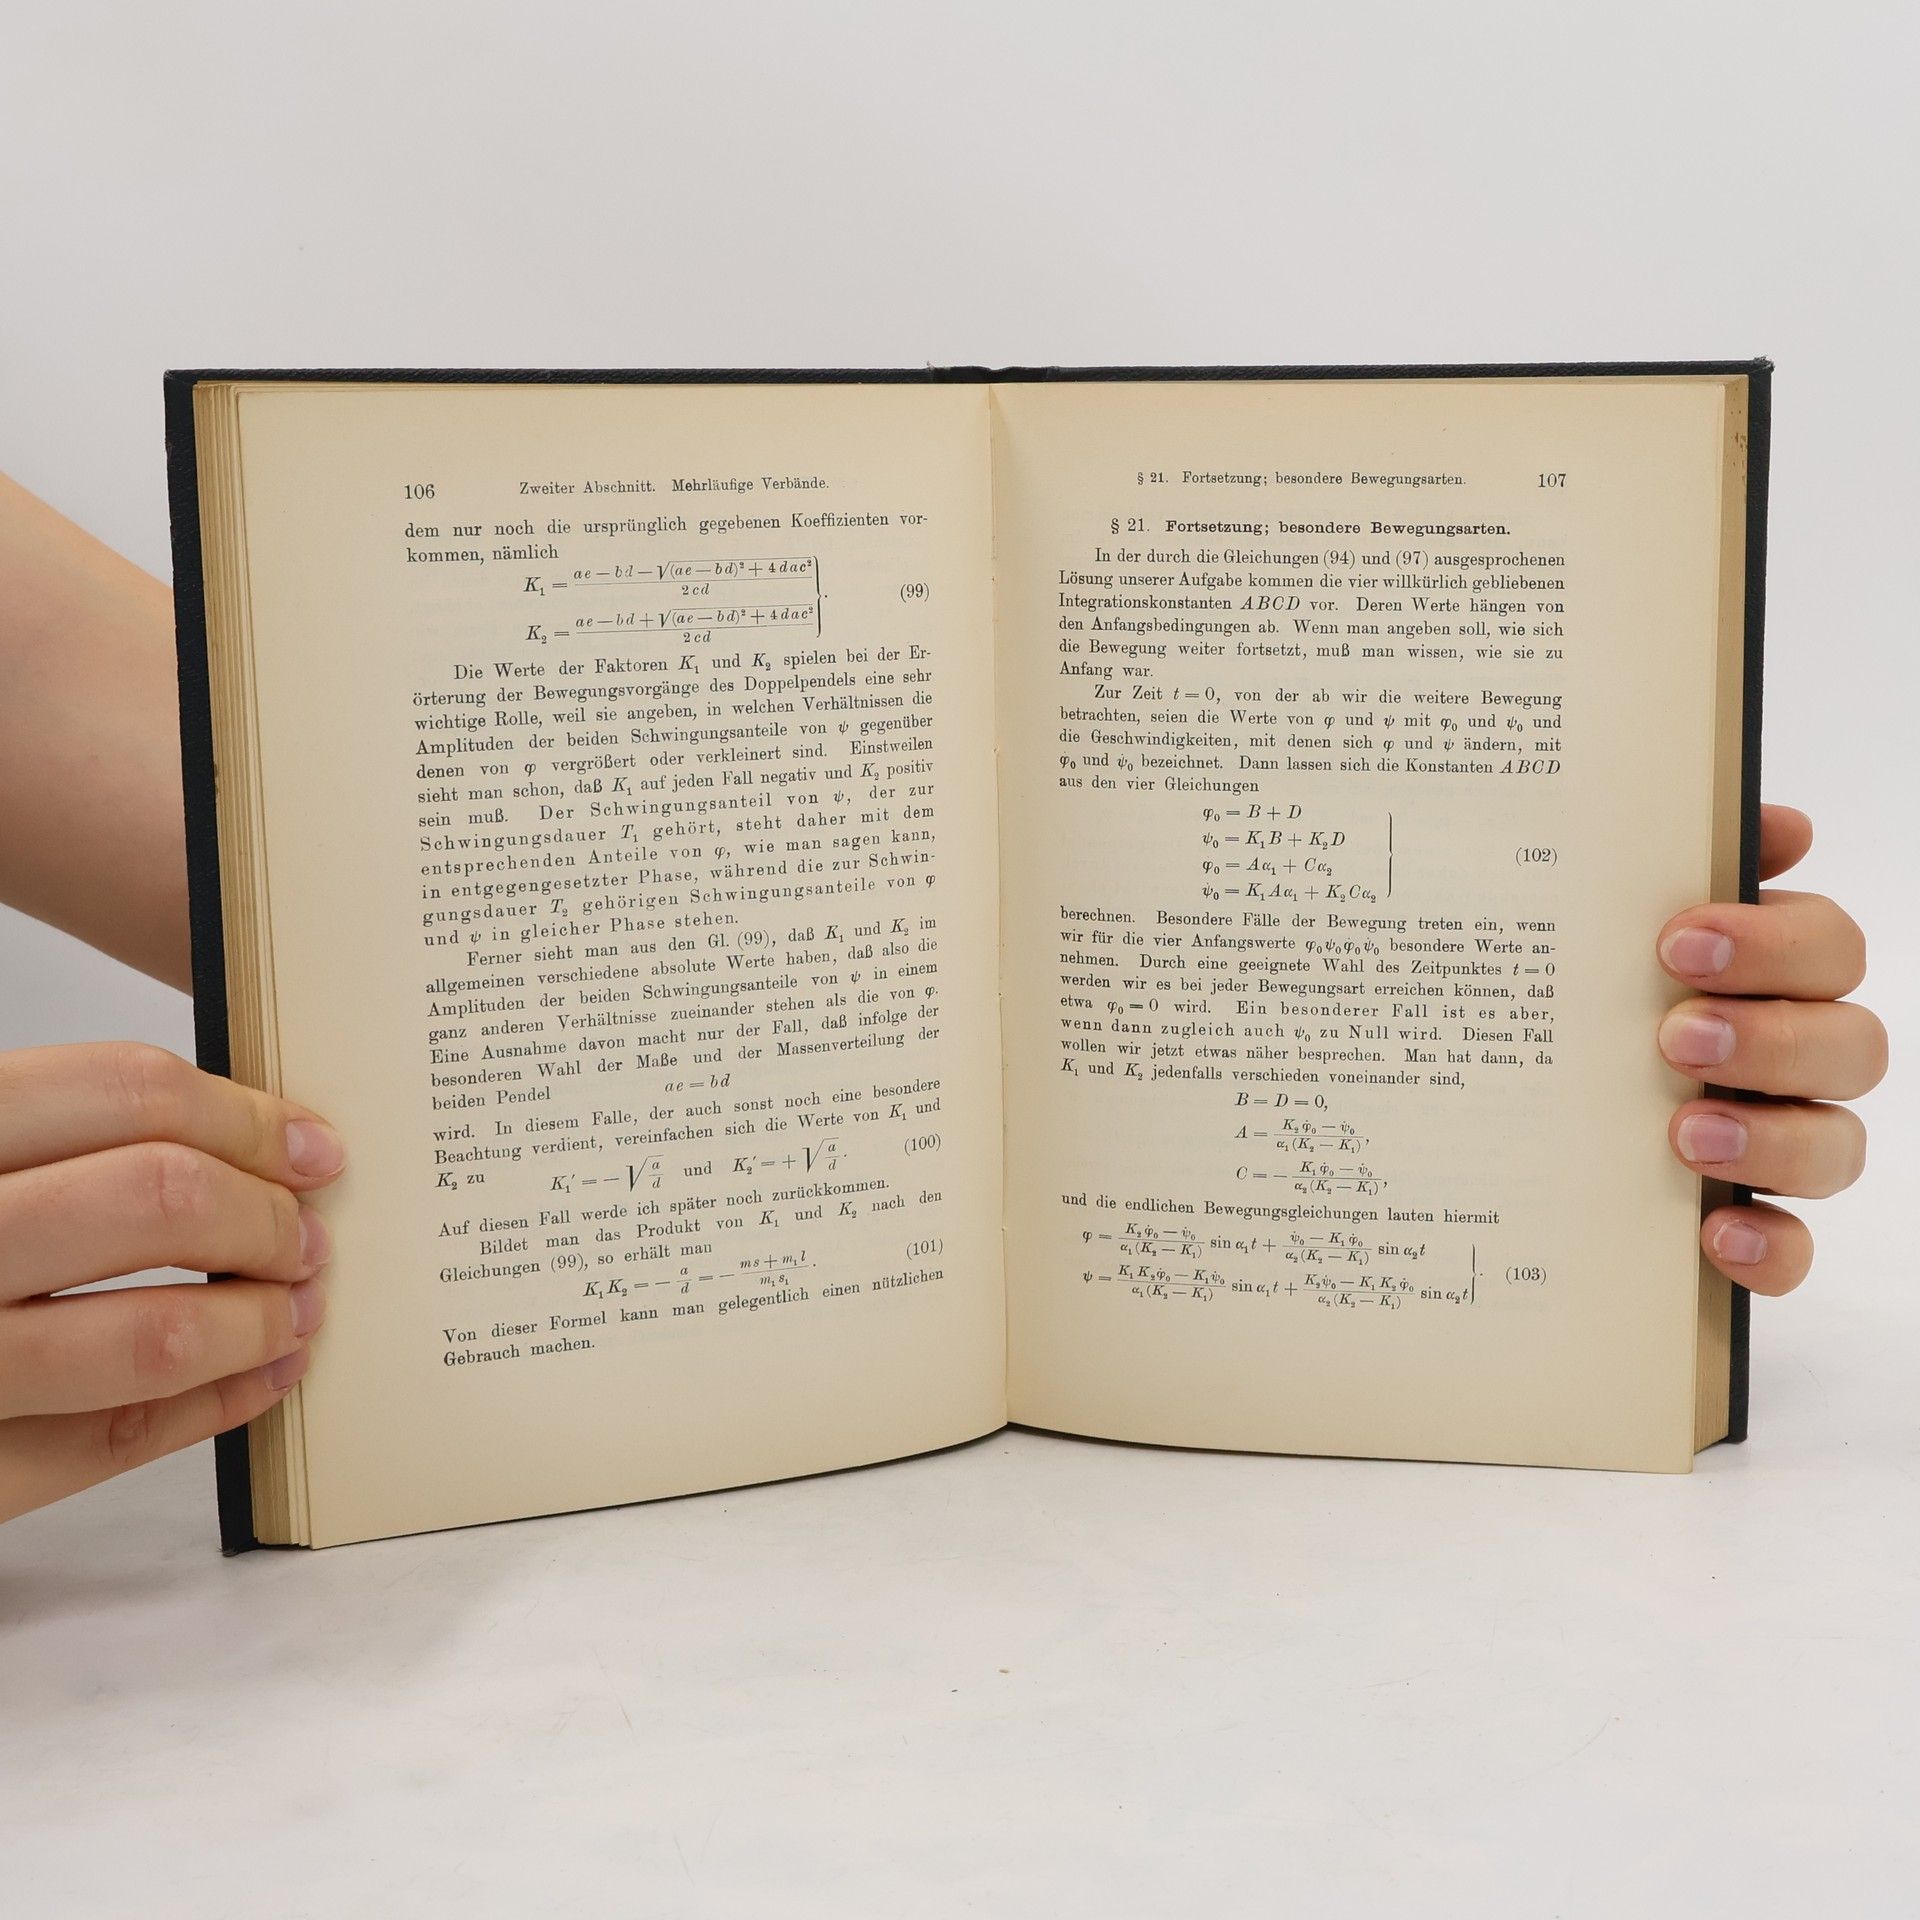 106 Zweiter Abschnitt. Mehrläufige Verbände.
dem nur noch die ursprünglich gegebenen Koeffizienten vor-
kommen, nämlich
K₁ = (ae − bd − √((ae − bd)² + 4dac²)) / 2cd
K₂ = (ae − bd + √((ae − bd)² + 4dac²)) / 2cd . (99)
Die Werte der Faktoren K₁ und K₂ spielen bei der Er-
örterung der Bewegungsvorgänge des Doppelpendels eine sehr
wichtige Rolle, weil sie angeben, in welchen Verhältnissen die
Amplituden der beiden Schwingungsanteile von ψ gegenüber
denen von φ vergrößert oder verkleinert sind. Einstweilen
sieht man schon, daß K₁ auf jeden Fall negativ und K₂ positiv
sein muß. Der Schwingungsanteil von ψ, der zur
Schwingungsdauer T₁ gehört, steht daher mit dem
entsprechenden Anteile von φ, wie man sagen kann,
in entgegengesetzter Phase, während die zur Schwin-
gungsdauer T₂ gehörigen Schwingungsanteile von φ
und ψ in gleicher Phase stehen.
Ferner sieht man aus den Gl. (99), daß K₁ und K₂ im
allgemeinen verschiedene absolute Werte haben, daß also die
Amplituden der beiden Schwingungsanteile von ψ in einem
ganz anderen Verhältnisse zueinander stehen als die von φ.
Eine Ausnahme davon macht nur der Fall, daß infolge der
besonderen Wahl der Maße und der Massenverteilung der
beiden Pendel
ae = bd
wird. In diesem Falle, der auch sonst noch eine besondere
Beachtung verdient, vereinfachen sich die Werte von K₁ und
K₂ zu
K₁′ = − √(a/d) und K₂′ = + √(a/d) . (100)
Auf diesen Fall werde ich später noch zurückkommen.
Bildet man das Produkt von K₁ und K₂ nach den
Gleichungen (99), so erhält man
K₁K₂ = − a/d = − (ms + m₁l) / m₁s₁ . (101)
Von dieser Formel kann man gelegentlich einen nützlichen
Gebrauch machen.
§ 21. Fortsetzung; besondere Bewegungsarten. 107
§ 21. Fortsetzung; besondere Bewegungsarten.
In der durch die Gleichungen (94) und (97) ausgesprochenen
Lösung unserer Aufgabe kommen die vier willkürlich gebliebenen
Integrationskonstanten ABCD vor. Deren Werte hängen von
den Anfangsbedingungen ab. Wenn man angeben soll, wie sich
die Bewegung weiter fortsetzt, muß man wissen, wie sie zu
Anfang war.
Zur Zeit t = 0, von der ab wir die weitere Bewegung
betrachten, seien die Werte von φ und ψ mit φ₀ und ψ₀ und
die Geschwindigkeiten, mit denen sich φ und ψ ändern, mit
φ̇₀ und ψ̇₀ bezeichnet. Dann lassen sich die Konstanten ABCD
aus den vier Gleichungen
φ₀ = B + D
ψ₀ = K₁B + K₂D
φ̇₀ = Aα₁ + Cα₂
ψ̇₀ = K₁Aα₁ + K₂Cα₂ (102)
berechnen. Besondere Fälle der Bewegung treten ein, wenn
wir für die vier Anfangswerte φ₀ψ₀φ̇₀ψ̇₀ besondere Werte an-
nehmen. Durch eine geeignete Wahl des Zeitpunktes t = 0
werden wir es bei jeder Bewegungsart erreichen können, daß
etwa φ₀ = 0 wird. Ein besonderer Fall ist es aber,
wenn dann zugleich auch ψ₀ zu Null wird. Diesen Fall
wollen wir jetzt etwas näher besprechen. Man hat dann, da
K₁ und K₂ jedenfalls verschieden voneinander sind,
B = D = 0,
A = (K₂φ̇₀ − ψ̇₀) / α₁(K₂ − K₁),
C = − (K₁φ̇₀ − ψ̇₀) / α₂(K₂ − K₁),
und die endlichen Bewegungsgleichungen lauten hiermit
φ = (K₂φ̇₀ − ψ̇₀) / α₁(K₂ − K₁) sin α₁t + (ψ̇₀ − K₁φ̇₀) / α₂(K₂ − K₁) sin α₂t
ψ = (K₁K₂φ̇₀ − K₁ψ̇₀) / α₁(K₂ − K₁) sin α₁t + (K₂ψ̇₀ − K₁K₂φ̇₀) / α₂(K₂ − K₁) sin α₂t . (103)